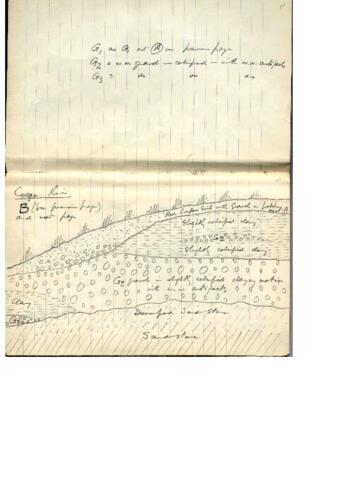 G1 as G, at A on previous page
G2 = w.w. gravels - calcified - with w.w. artifacts
G3 = do do do
B (on previous page)
and next page
Red Surface Soil with Gravels in
Slightly calcified clay
G3
Slightly calcified clay
G2 gravels in slightly calcified clayey matrix
with w.w. artifacts
Clay
Decomposed Sandstone
Sandstone